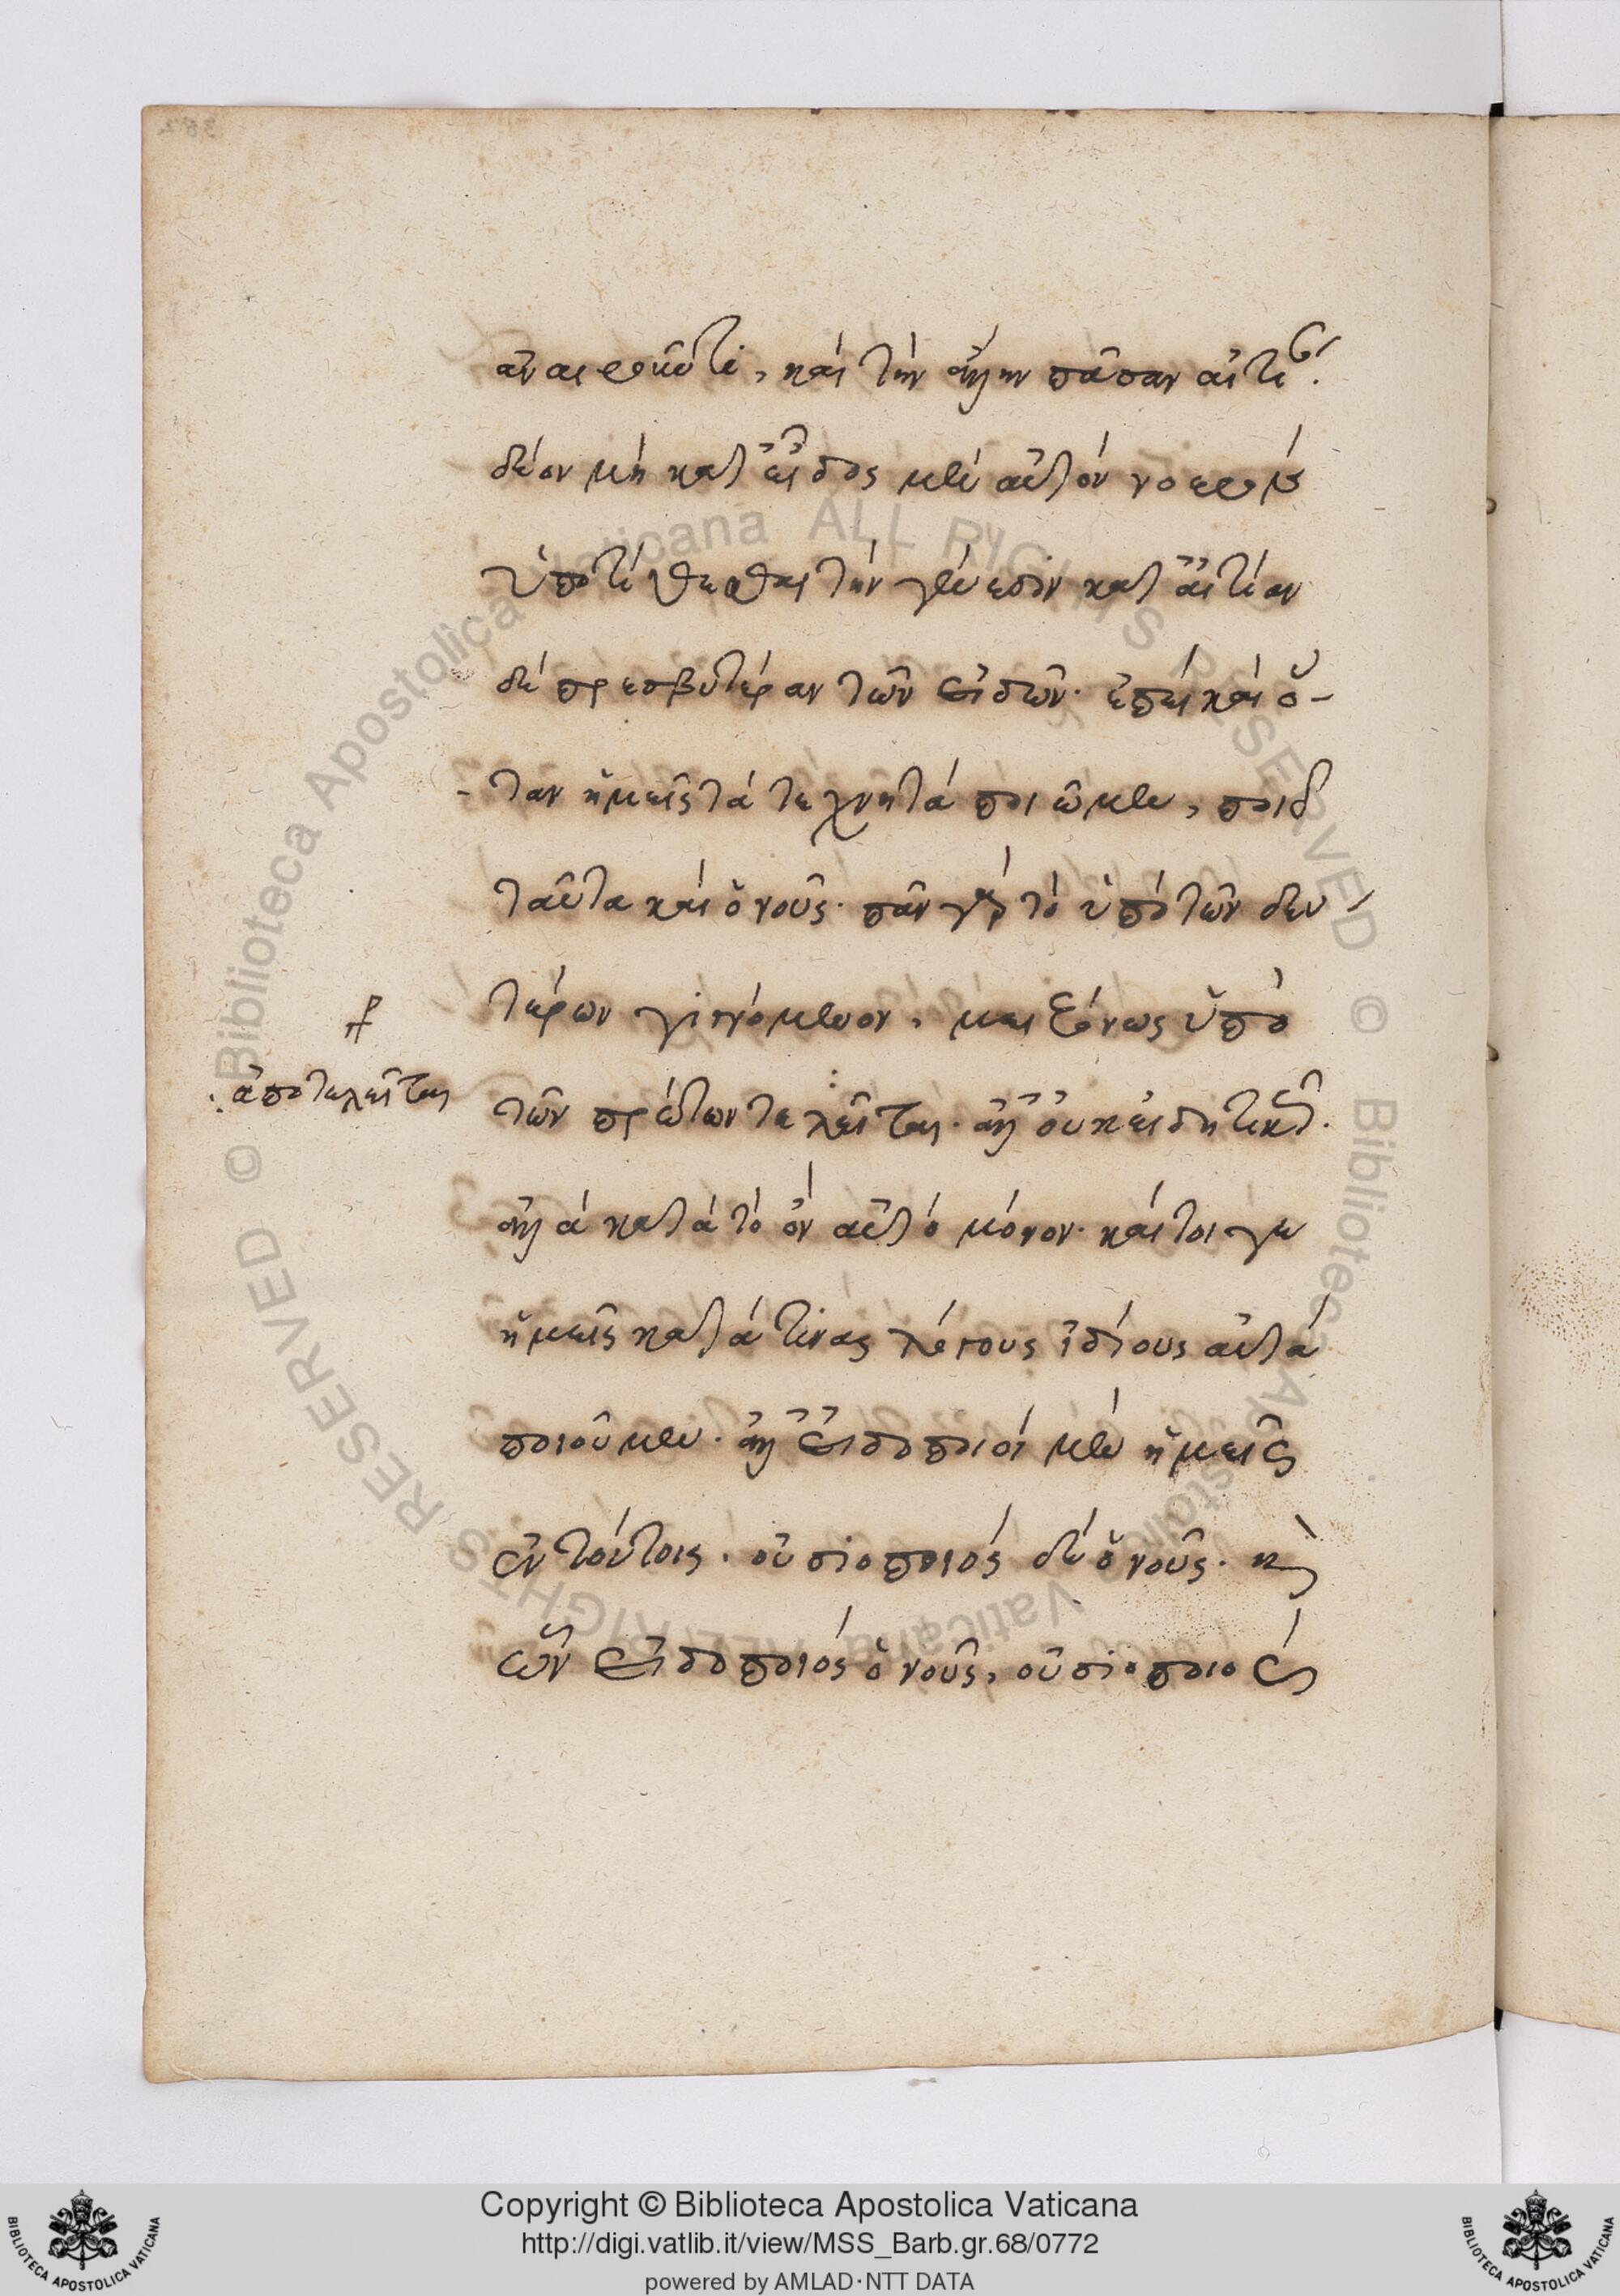 ἀναιροῦντι, καὶ τὴν ἄλλην πᾶσαν αἰτίαν.
δέον μὴ κατ εἶδος μὲν αὐτὸν νοερὰν
ὑποτίθεσθαι τὴν γένεσιν κατ αἰτίαν
δὲ πρεσβυτέραν τῶν εἰδῶν· ἐπεὶ καὶ ὅ-
-ταν ἡμεῖς τὰ τεχνητὰ ποιῶμεν, ποιεῖ
ταῦτα καὶ ὁ νοῦς· πᾶν γὰρ τὸ ὑπὸ τῶν δευ
τέρων γινόμενον, μειζόνως ὑπὸ
ἀποτελεῖται
τῶν πρώτων τελεῖται· ἀλλ οὐκ εἰδητικῶς.
ἀλλὰ κατὰ τὸ ὂν αὐτὸ μόνον· καίτοι γε
ἡμεῖς κατά τινας λόγους ἰδίους αὐτὰ
ποιοῦμεν· ἀλλ εἰδοποιοὶ μὲν ἡμεῖς
ἐν τούτοις· οὐσιοποιὸς δὲ ὁ νοῦς· καὶ
ὧν εἰδοποιὸς ὁ νοῦς, οὐσιοποιὸς
Copyright © Biblioteca Apostolica Vaticana
http://digi.vatlib.it/view/MSS_Barb.gr.68/0772
powered by AMLAD·NTT DATA
© Biblioteca Apostolica Vaticana ALL RIGHTS RESERVED
© Biblioteca Apostolica Vaticana ALL RIGHTS RESERVED
BIBLIOTECA APOSTOLICA VATICANA
BIBLIOTECA APOSTOLICA VATICANA